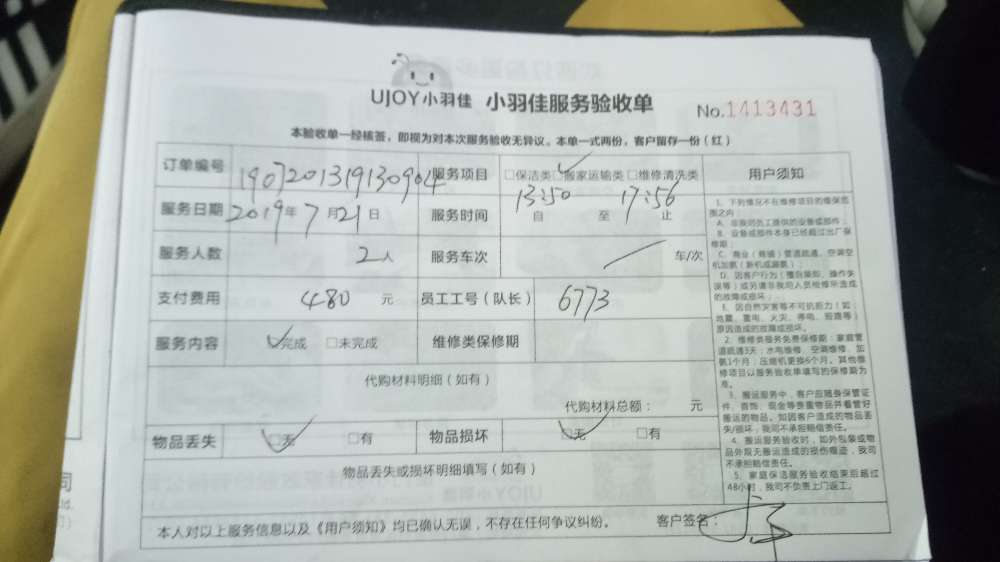 UJOY小羽佳 小羽佳服务验收单
No.1413431
本验收单一经核签，即视为对本次服务验收无异议。本单一式两份，客户留存一份（红）
订单编号 1907201319130904 服务项目 □保洁类□搬家运输类□维修清洗类 用户须知
服务日期 2019年7月21日 服务时间 13:50 自 至 17:56 止
服务人数 2人 服务车次 车/次
支付费用 480 元 员工工号（队长） 6773
服务内容 □完成 □未完成 维修类保修期
代购材料明细（如有）
代购材料总额： 元
物品丢失 □无 □有 物品损坏 □无 □有
物品丢失或损坏明细填写（如有）
本人对以上服务信息以及《用户须知》均已确认无误，不存在任何争议纠纷。 客户签名：
1、下列情况不在维修项目的维保范
围之内：
A、非我司员工提供的设备或部件；
B、设备或部件本身已经超过出厂保
修期；
C、商业（商铺）管道疏通、空调空
机加氨（新机或漏氨）；
D、因客户行为（擅自拆卸、操作失
误等）或另请非我司人员检修所造成
的故障或损坏；
E、因自然灾害等不可抗拒力（如：
地震、雷电、火灾、停电、短路等）
原因造成的故障或损坏。
2、维修类服务免费保修期：家庭管
道疏通3天；水电维修、空调维修、加
氨1个月；压缩机更换6个月。其他维
修项目以服务验收单填写的保修期为
准。
3、搬运服务中，客户应随身保管证
件、首饰、现金等贵重物品并看管好
搬运的物品。如因客户造成的物品丢
失/损坏，我司不承担赔偿责任。
4、搬运服务验收时，如外包装或物
品外观无搬运造成的损伤痕迹，我司
不承担赔偿责任。
5、家庭保洁服务验收结束后超过
48小时，我司不负责上门返工。
司
td.